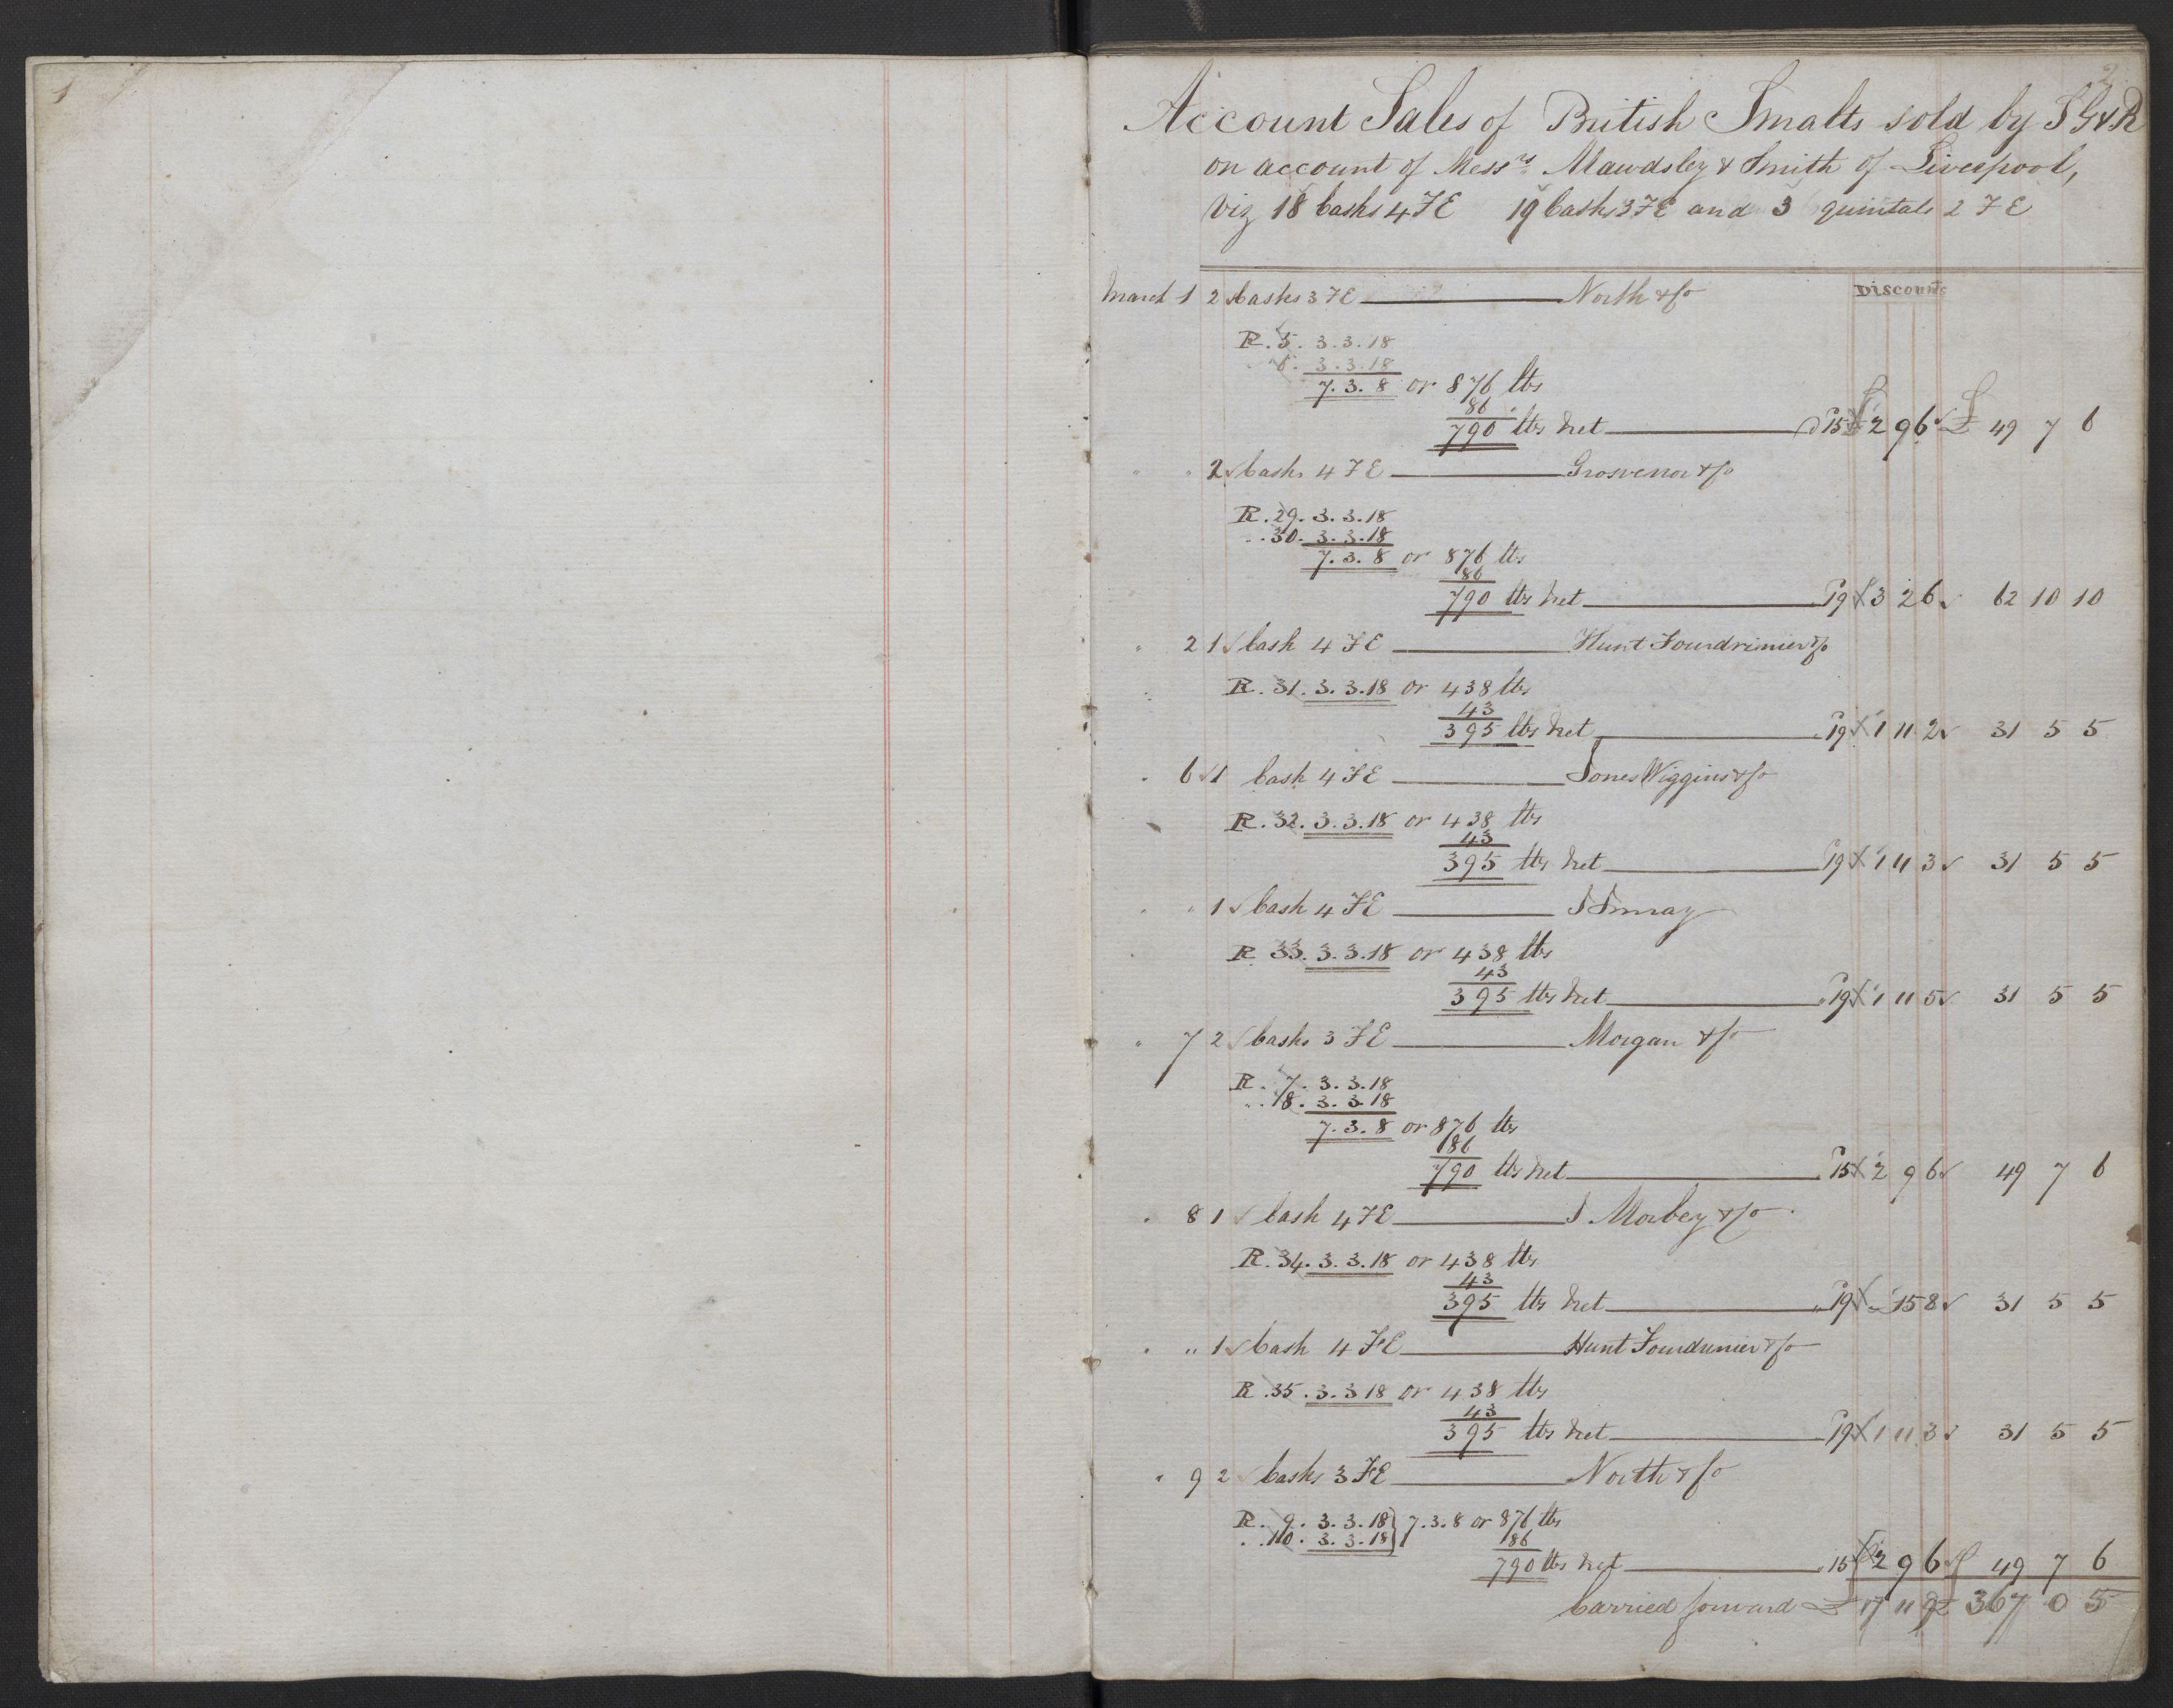 1
2
Account Sales of British Smalts sold by S G & R
on account of Messrs Mawdsley & Smith of Liverpool,
Viz 18 Casks 4 F E 19 Casks 3 F E and 3 quintals 2 F E
Discounts
March 1 2 Casks 3 F E North & Co
R. 5. 3.3.18
" 6. 3.3.18
7.3.8 or 876 lbs
86
790 lbs Net 15 £ 2 9 6 £ 49 7 6
" " 2 Casks 4 F E Grosvenor & Co
R. 29. 3.3.18
" 30. 3.3.18
7.3.8 or 876 lbs
86
790 lbs Net 19 3 2 6 62 10 10
" 2 1 Cask 4 F E Hunt Fourdrinier & Co
R. 31. 3.3.18 or 438 lbs
43
395 lbs Net 19 1 11 2 31 5 5
" 6 1 Cask 4 F E Jones Wiggins & Co
R. 32. 3.3.18 or 438 lbs
43
395 lbs Net 19 1 11 3 31 5 5
" " 1 Cask 4 F E
R. 33. 3.3.18 or 438 lbs
43
395 lbs Net 19 1 11 5 31 5 5
" 7 2 Casks 3 F E Morgan & Co
R. 7. 3.3.18
" 8. 3.3.18
7.3.8 or 876 lbs
86
790 lbs Net 15 2 9 6 49 7 6
" 8 1 Cask 4 F E J Morbey & Co
R. 34. 3.3.18 or 438 lbs
43
395 lbs Net 19 " 15 8 31 5 5
" " 1 Cask 4 F E Hunt Fourdrinier & Co
R. 35. 3.3 18 or 438 lbs
43
395 lbs Net 19 1 11 3 31 5 5
" 9 2 Casks 3 F E North & Co
R. 9. 3.3.18 } 7.3.8 or 876 lbs
" 10. 3.3.18 } 86
790 lbs Net 15 2 9 6 49 7 6
Carried forward £ 17 11 9 £ 367 0 5